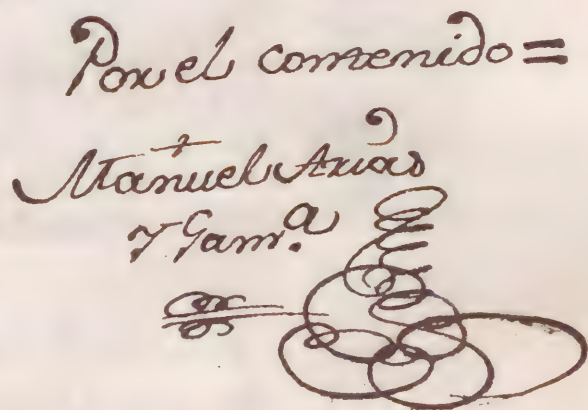 Por el contenido =
Manuel Arias
y Gam.ª